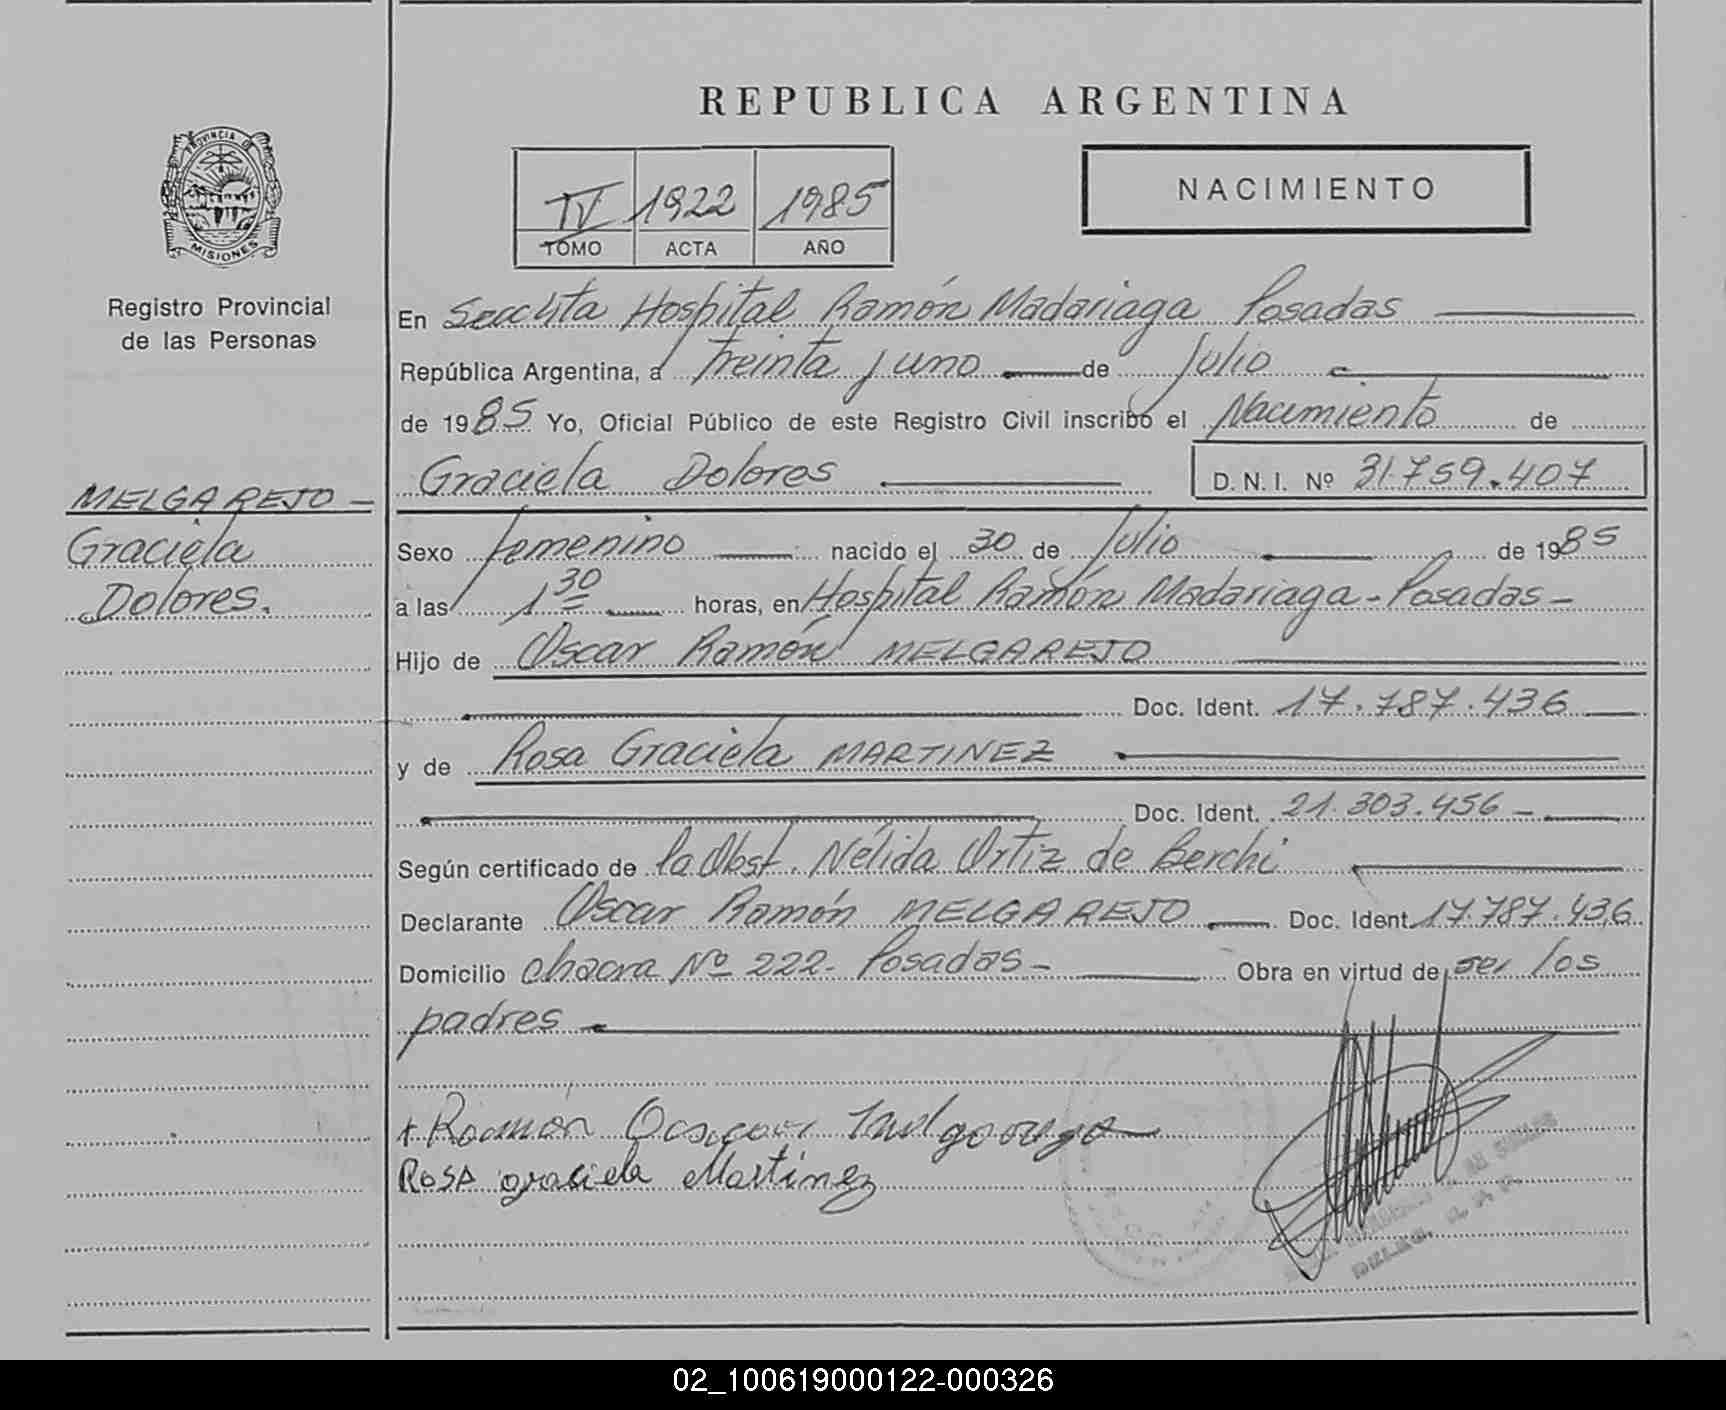 REPUBLICA ARGENTINA
PROVINCIA DE
MISIONES
Registro Provincial
de las Personas
MELGAREJO -
Graciela
Dolores.
IV 1922 1985
TOMO ACTA AÑO
NACIMIENTO
En Seccita Hospital Ramón Madariaga Posadas
República Argentina, a treinta y uno de Julio
de 1985 Yo, Oficial Público de este Registro Civil inscribo el Nacimiento de
Graciela Dolores D. N. I. Nº 31.759.407
Sexo femenino nacido el 30 de Julio de 1985
a las 1 30 horas, en Hospital Ramón Madariaga - Posadas -
Hijo de Oscar Ramón MELGAREJO
Doc. Ident. 17.787.436
y de Rosa Graciela MARTINEZ
Doc. Ident. 21.303.456 -
Según certificado de la Obst. Nélida Ortiz de Berchi
Declarante Oscar Ramón MELGAREJO Doc. Ident. 17.787.436
Domicilio chacra Nº 222- Posadas - Obra en virtud de ser los
padres
Ramón
Rosa graciela Martinez
02_100619000122-000326